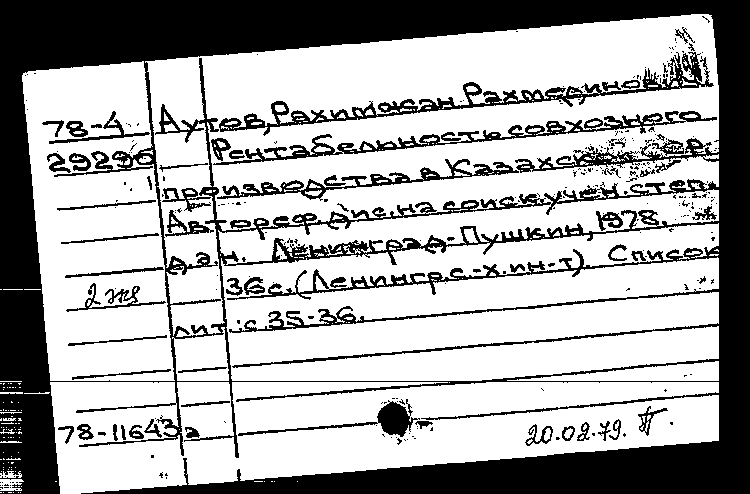 78-4 Аутов, Рахимжан Рахмединович.
29296 Рентабельность совхозного
производства в Казахской ССР.
Автореф. дис. на соиск. учен. степ.
д.э.н. Ленинград-Пушкин, 1978.
2 экз 36 с. (Ленингр. с.-х. ин-т). Список
лит.: с. 35-36.
78-11643а
20.02.79.